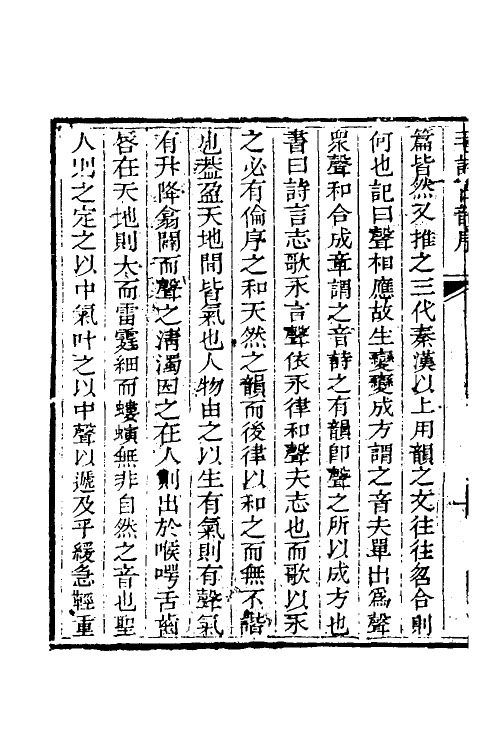 毛詩古韻序
篇皆然又推之三代秦漢以上用韻之文往往多合則
何也記曰聲相應故生變變成方謂之音夫單出爲聲
衆聲和合成章謂之音詩之有韻卽聲之所以成方也
書曰詩言志歌永言聲依永律和聲夫志也而歌以永
之必有倫序之和天然之韻而後律以和之而無不諧
也葢盈天地間皆氣也人物由之以生有氣則有聲氣
有升降翕闢而聲之淸濁因之在人則出於喉咢舌齒
唇在天地則大而雷霆細而螻蟥無非自然之音也聖
人則之定之以中氣叶之以中聲以遞及乎緩急輕重